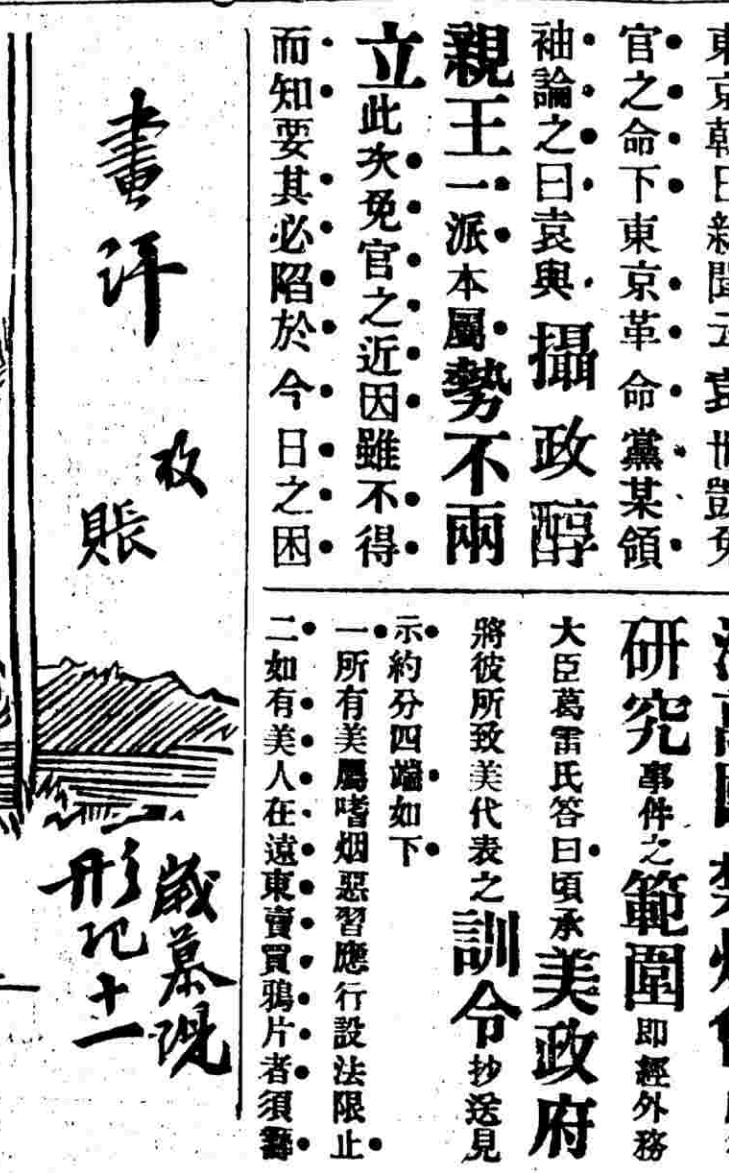 東京朝日新聞云袁世凱免
官之命下東京革命黨某領
袖論之曰袁與攝政醇
親王一派本屬勢不兩
立此次免官之近因雖不得
而知要其必陷於今日之困
萬國禁烟會
研究事件之範圍即經外務
大臣葛雷氏答曰頃承美政府
將彼所致美代表之訓令抄送見
示約分四端如下
一所有美屬嗜烟惡習應行設法限止
二如有美人在遠東賣買鴉片者須籌
畫評
收
賬
歲暮現
形記十一